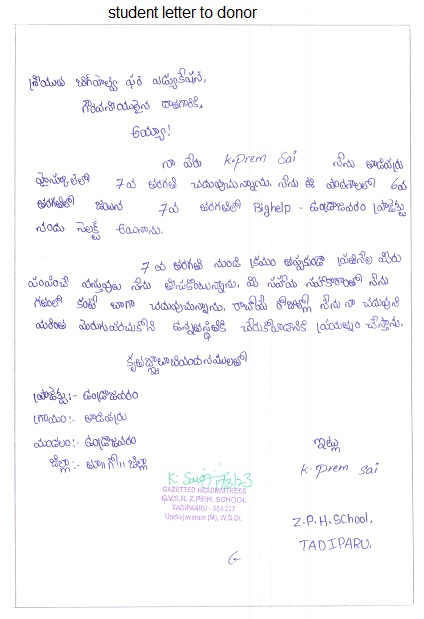 student letter to donor
శ్రీయుత బిగ్‌హెల్ప్ ఫర్ ఎడ్యుకేషన్,
గౌరవనీయులైన దాతగారికి,
అయ్యా!
నా పేరు K. Prem Sai నేను తాడిపర్రు
హైస్కూల్‌లో 7వ తరగతి చదువుచున్నాను. నేను ఈ పాఠశాలలో 6వ
తరగతిలో 7వ తరగతిలో Bighelp - ఉండ్రాజవరం ప్రాజెక్టు
నందు సెలక్ట్ అయినాను.
7వ తరగతి నుండి క్రమం తప్పకుండా ప్రతినెల మీరు
పంపించే వస్తువులు నేను తీసుకొంటున్నాను. మీ సహాయ సహకారాలతో నేను
గతంలో కంటే బాగా చదువుచున్నాను. రాబోయే రోజుల్లో నేను నా చదువుని
మరింత మెరుగుపరచుకొని ఉన్నతస్థితికి చేరుకోవడానికి ప్రయత్నం చేస్తాను.
కృతజ్ఞతాభివందనములతో
ప్రాజెక్టు:- ఉండ్రాజవరం
గ్రామం:- తాడిపర్రు
మండలం:- ఉండ్రాజవరం
జిల్లా:- తూ॥గో॥ జిల్లా
ఇట్లు
K. Prem Sai
Z.P.H. School,
TADIPARU.
GAZETTED HEADMISTRESS
G.V.S.R. Z.P.P.H. SCHOOL
TADIPARRU - 534 227
Undrajavaram (M), W.G.Dt.